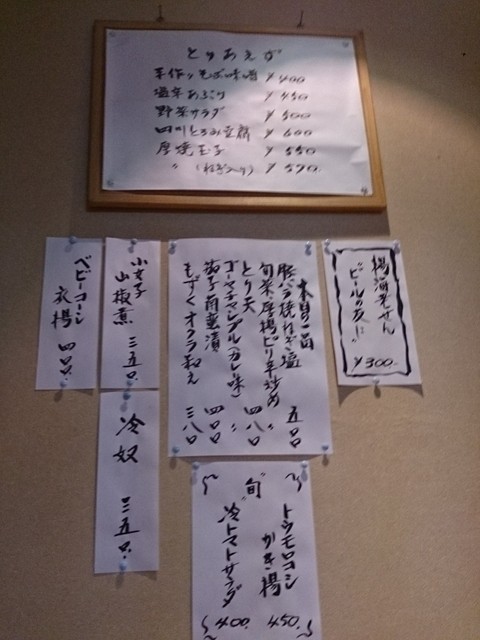 とりあえず
手作りもろみ味噌 ¥400
塩辛あぶり ¥450
野菜サラダ ¥500
四川とろみ豆腐 ¥600
厚焼玉子 ¥550
〃 (ねぎ入り) ¥590.
揚海老せん
"ビールの友に"
¥300.
本日の一品
豚バラ焼ねぎ塩 五〇〇
旬菜と厚揚ピリ辛炒め 〃
とり天 四八〇
ゴーヤチャンプル(カレー味) 〃
茄子角煮漬 四〇〇
もずくオクラ和え 三八〇
小女子
山椒煮 三五〇.
ベビーコーン
衣揚 四〇〇.
冷奴 三五〇.
"旬"
トウモロコシ
かき揚 450.
冷トマトサラダ 400.